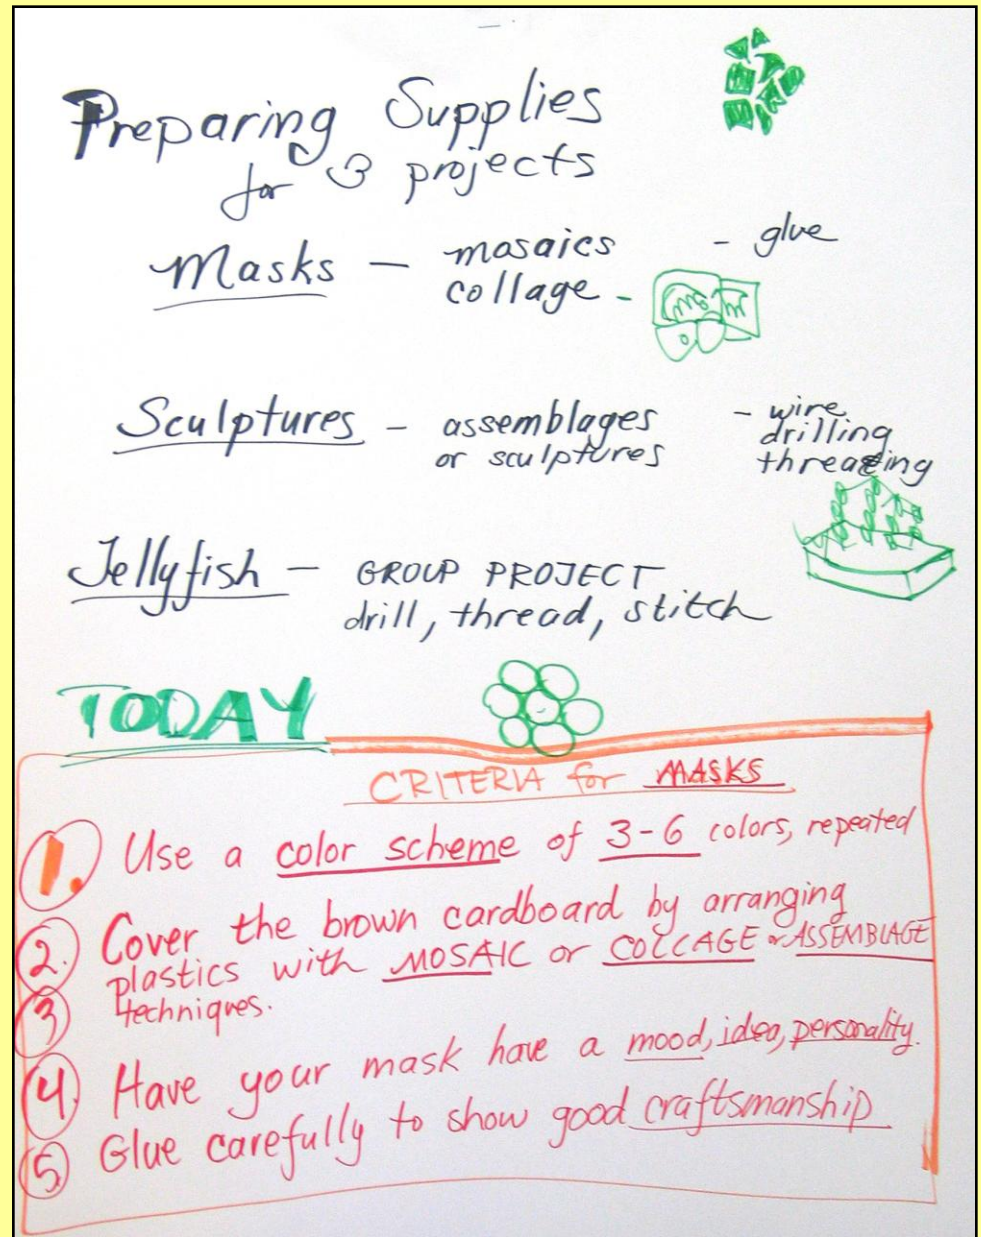 Preparing Supplies
for 3 projects
Masks – mosaics - glue
collage -
Sculptures – assemblages - wire
or sculptures drilling
threading
Jellyfish – GROUP PROJECT
drill, thread, stitch
TODAY
CRITERIA for MASKS
1. Use a color scheme of 3-6 colors, repeated
2. Cover the brown cardboard by arranging
plastics with MOSAIC or COLLAGE or ASSEMBLAGE
3 techniques.
4 Have your mask have a mood, idea, personality.
5 Glue carefully to show good craftsmanship